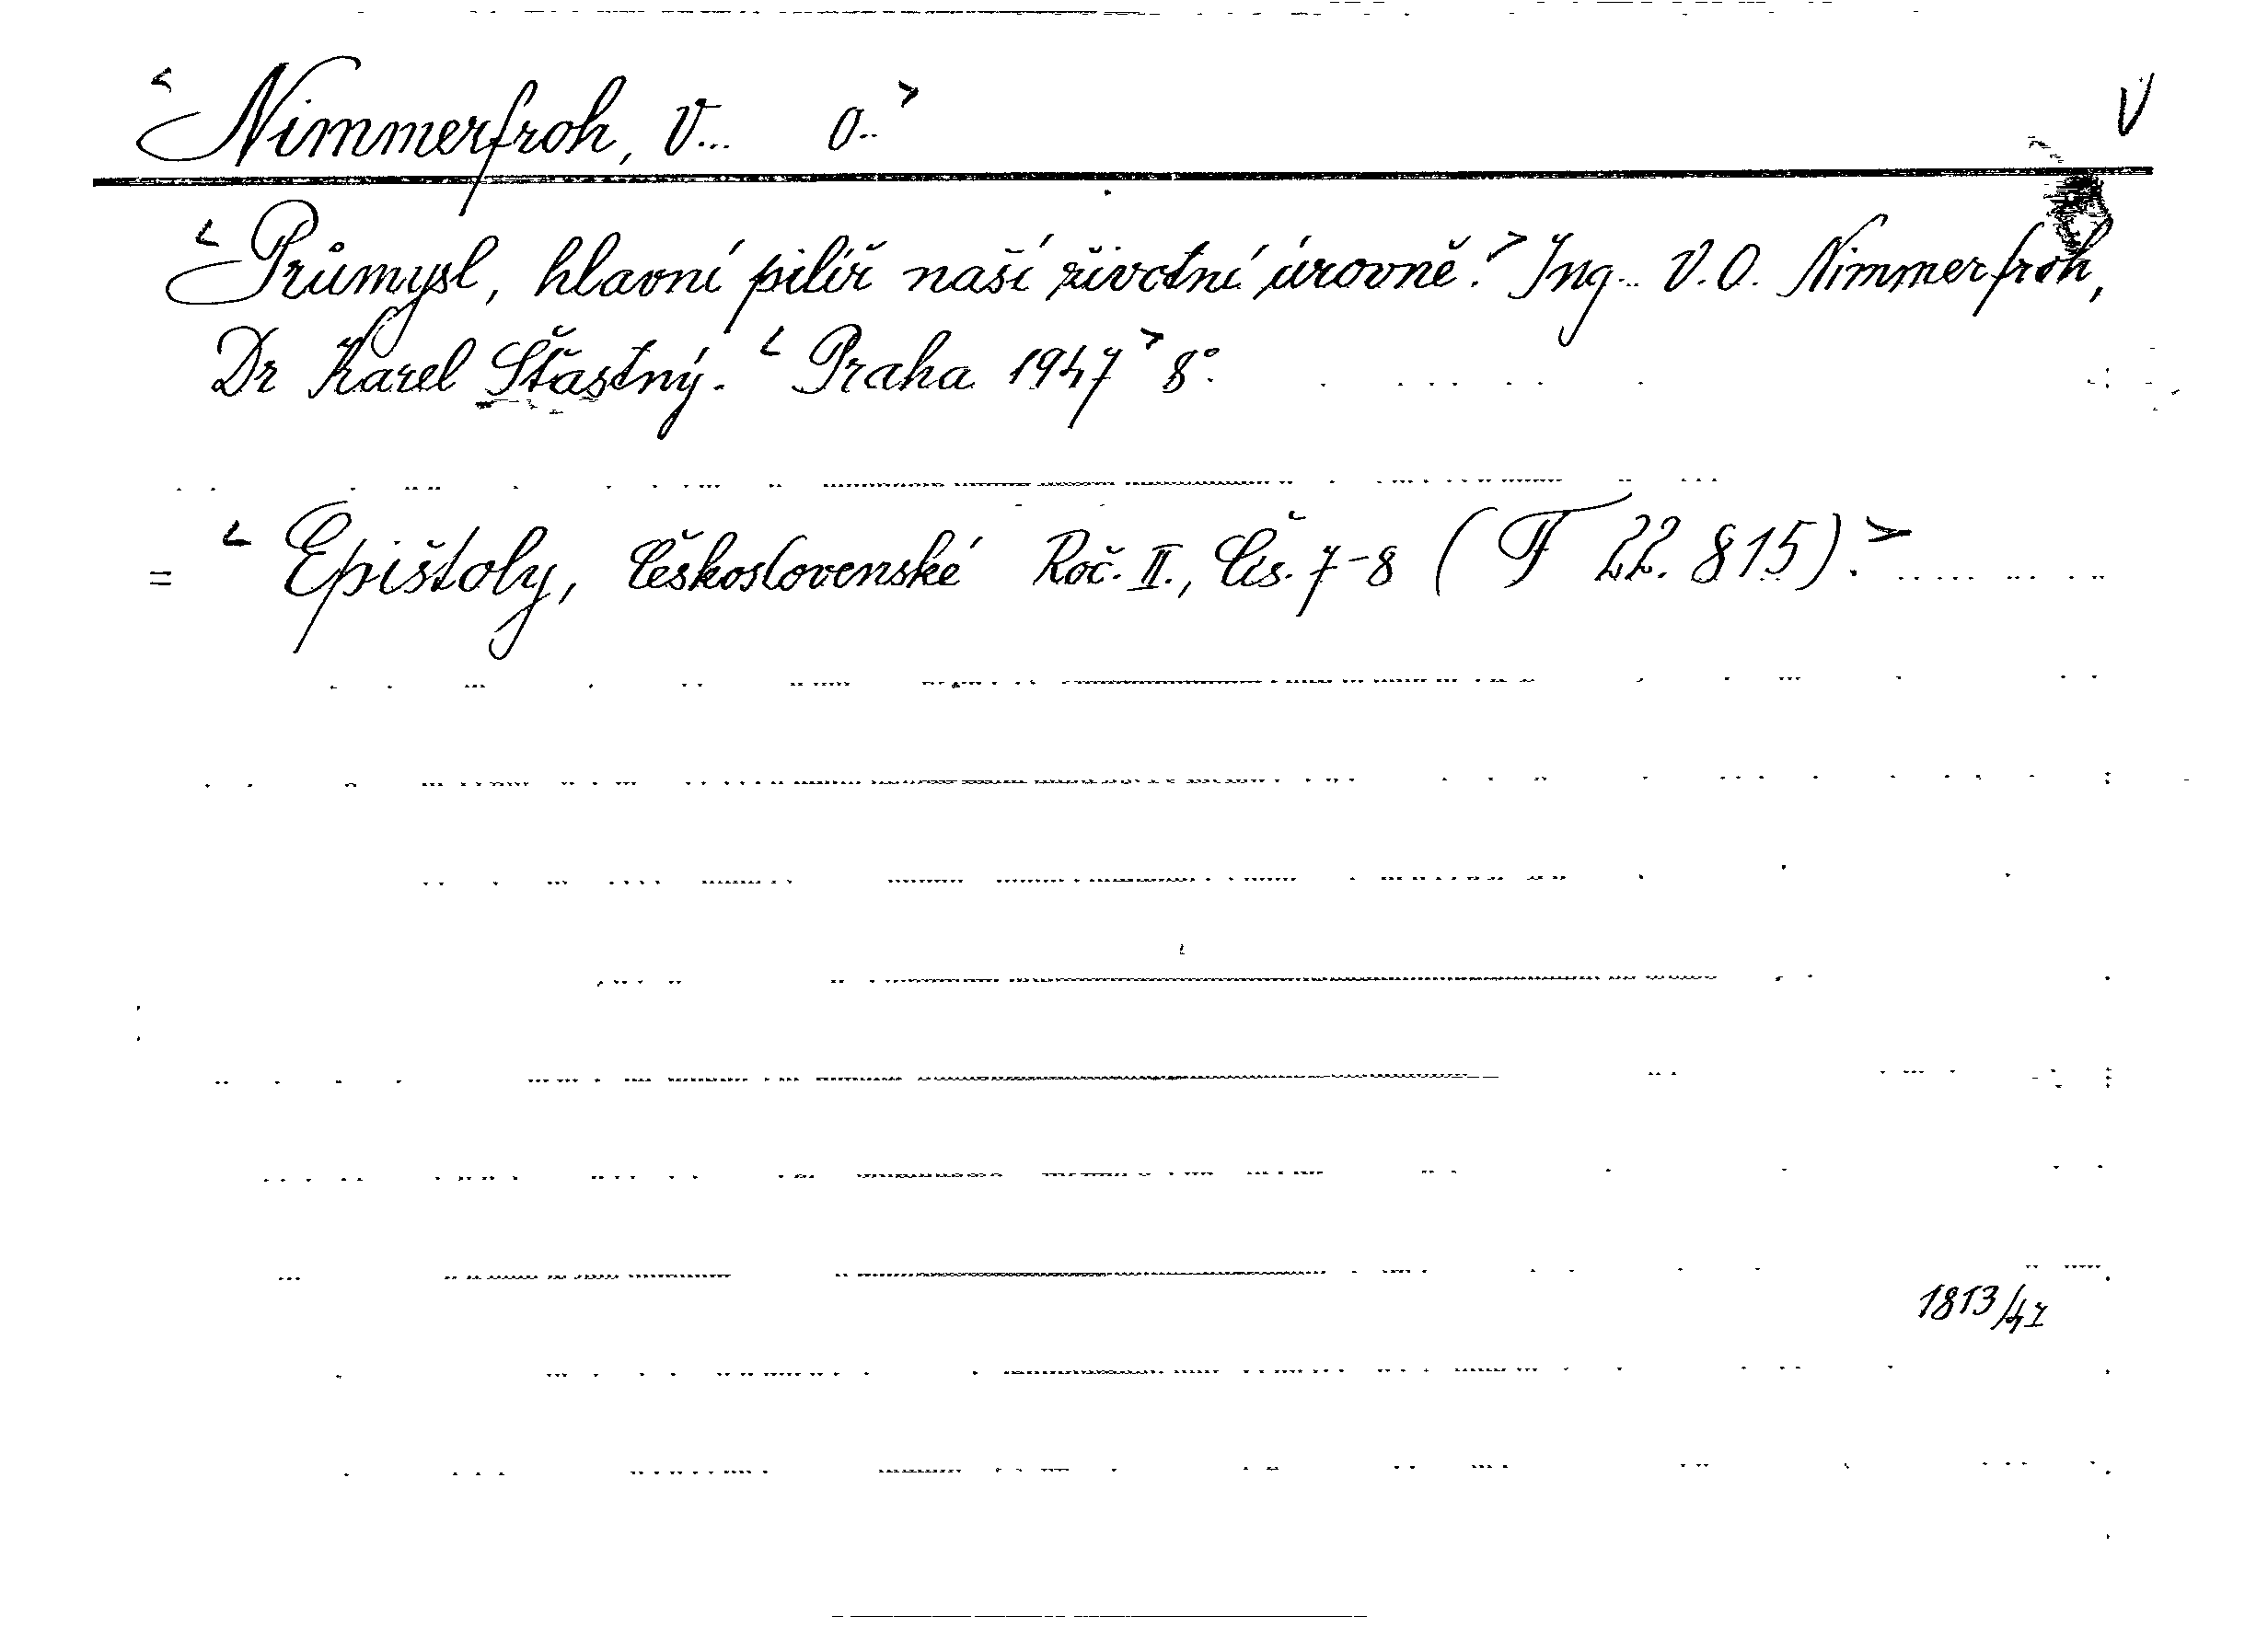 < Nimmerfroh, V... O.. > V
< Průmysl, hlavní pilíř naší životní úrovně. > Ing.. V. O. Nimmerfroh,
Dr Karel Šťastný. < Praha 1947 > 8°.
= < Epištoly, Československé Roč. II., Čís. 7-8 ( F 22.815). >
1813/47